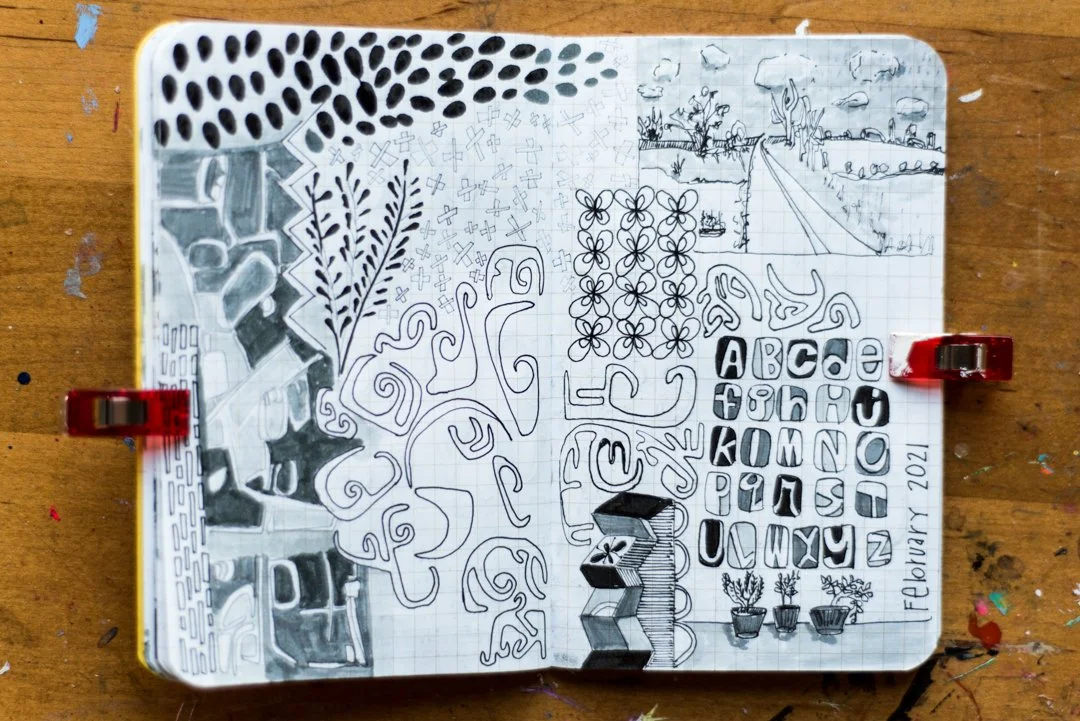 A B C d e
f g h i j
K l M N O
P q r S T
U V W X Y Z
February 2021